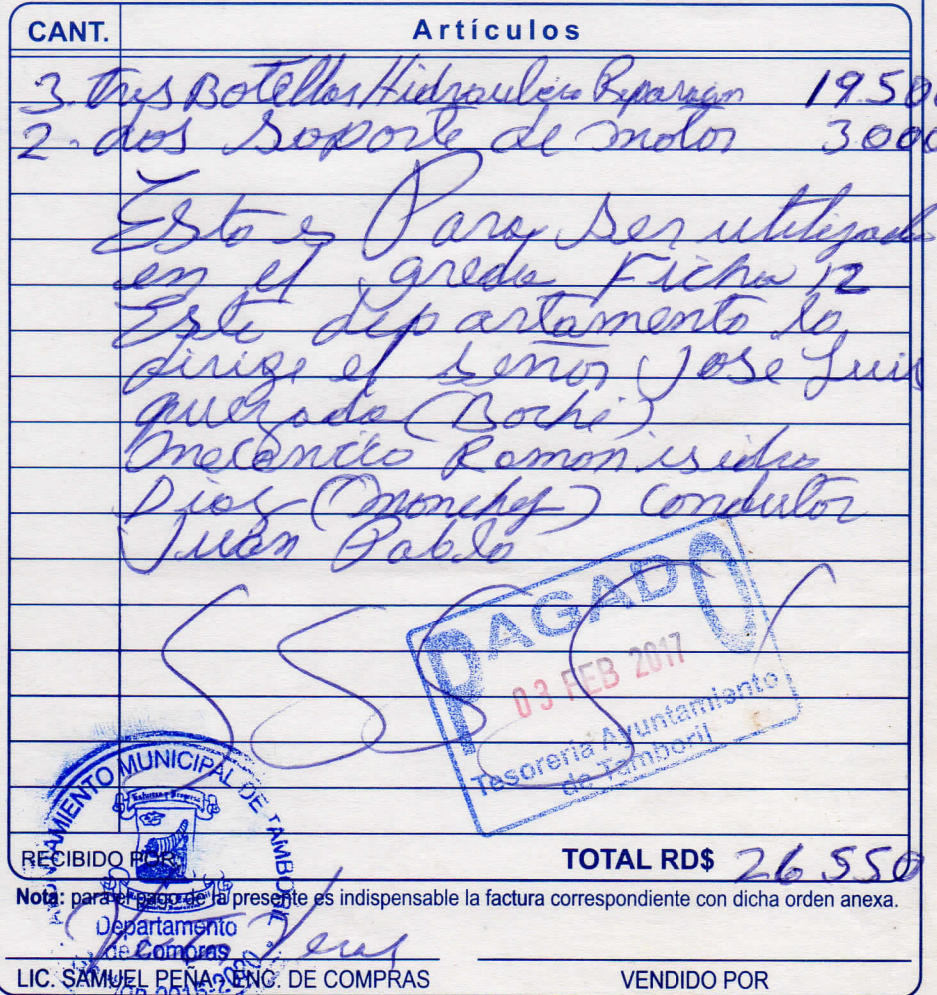 CANT. Artículos
3. tres Botellas Hidraulica Reparacion 19.500
2. dos Soporte de motor 3.000
Esto es Para ser utilizado
en el greda Ficha 12
Este departamento lo
dirige el señor Jose Luis
quezada (Bochi)
mecanico Ramon isidro
Diaz (monchy) Condutor
Juan Pablo
PAGADO
03 FEB 2017
Tesorería Ayuntamiento
de Tamboril
AYUNTAMIENTO MUNICIPAL DE TAMBORIL
RECIBIDO POR: TOTAL RD$ 26.550
Nota: para el pago de la presente es indispensable la factura correspondiente con dicha orden anexa.
Departamento
de Compras
LIC. SAMUEL PEÑA, ENC. DE COMPRAS VENDIDO POR